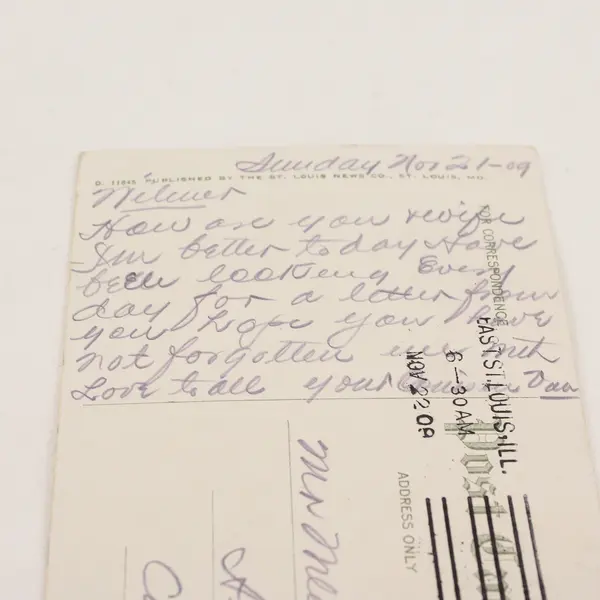 Sunday Nov 21-09
D. 11845 PUBLISHED BY THE ST. LOUIS NEWS CO., ST. LOUIS, MO.
Wilmer
How are you
I'm better today Have
been looking Every
day for a letter from
you hope you have
not forgotten me with
Love to all your Cousin
FOR CORRESPONDENCE
EAST. ST. LOUIS, ILL.
6-30 AM
NOV 22 09
Post
ADDRESS ONLY
Mr